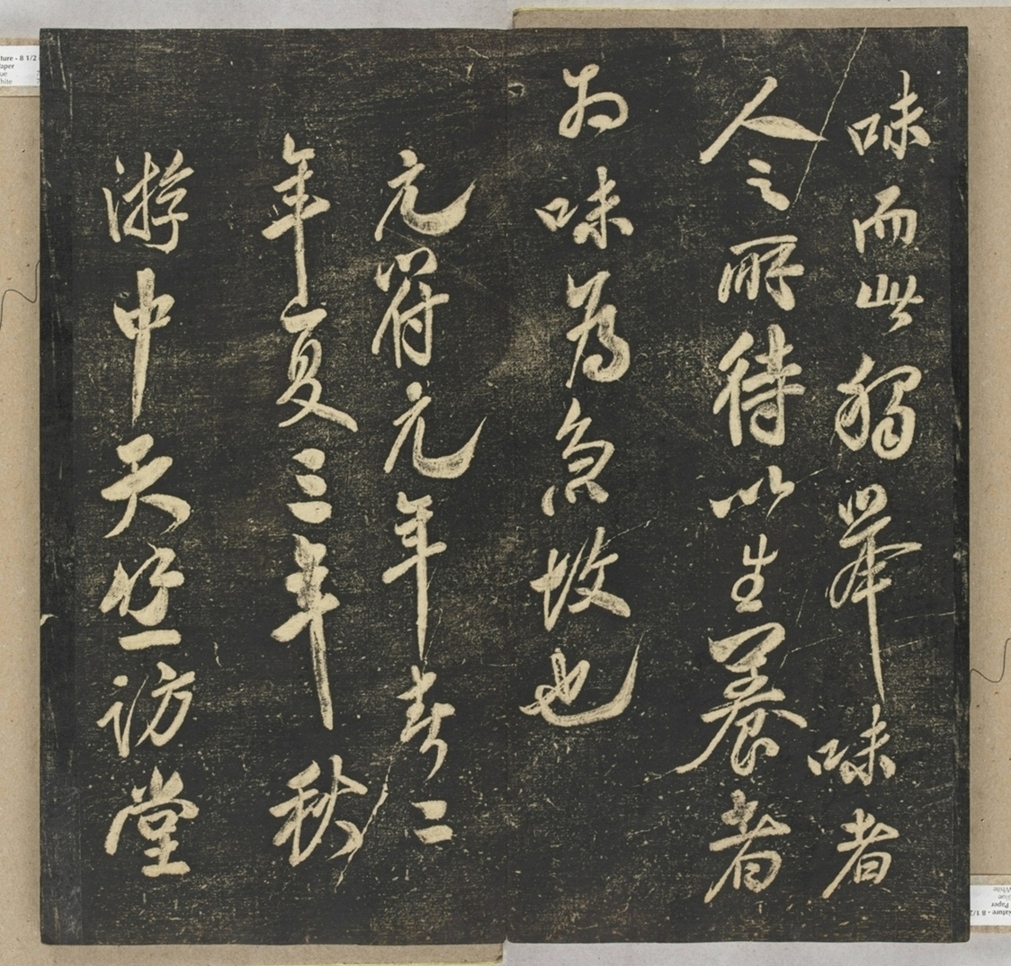 味而此獨舉味者
人之所待以生養者
而味為急故也
元符元年春二
年夏三年秋
游中天竺一訪堂